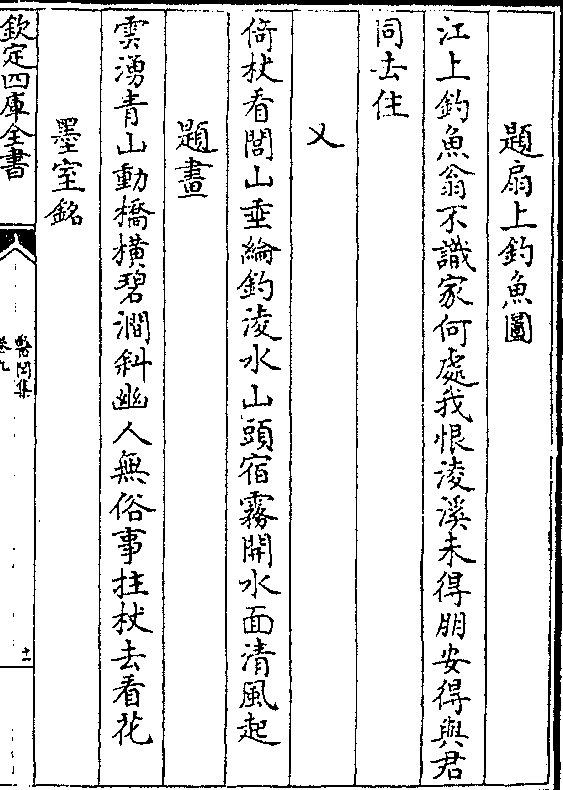 題扇上釣魚圖
江上釣魚翁不識家何處我恨淩溪未得朋安得與君
同去住
又
倚杖看閭山垂綸釣淩水山頭宿霧開水面清風起
題畫
雲湧青山動橋橫碧澗斜幽人無俗事拄杖去看花
墨室銘
欽定四庫全書
醫閭集
卷九
十一